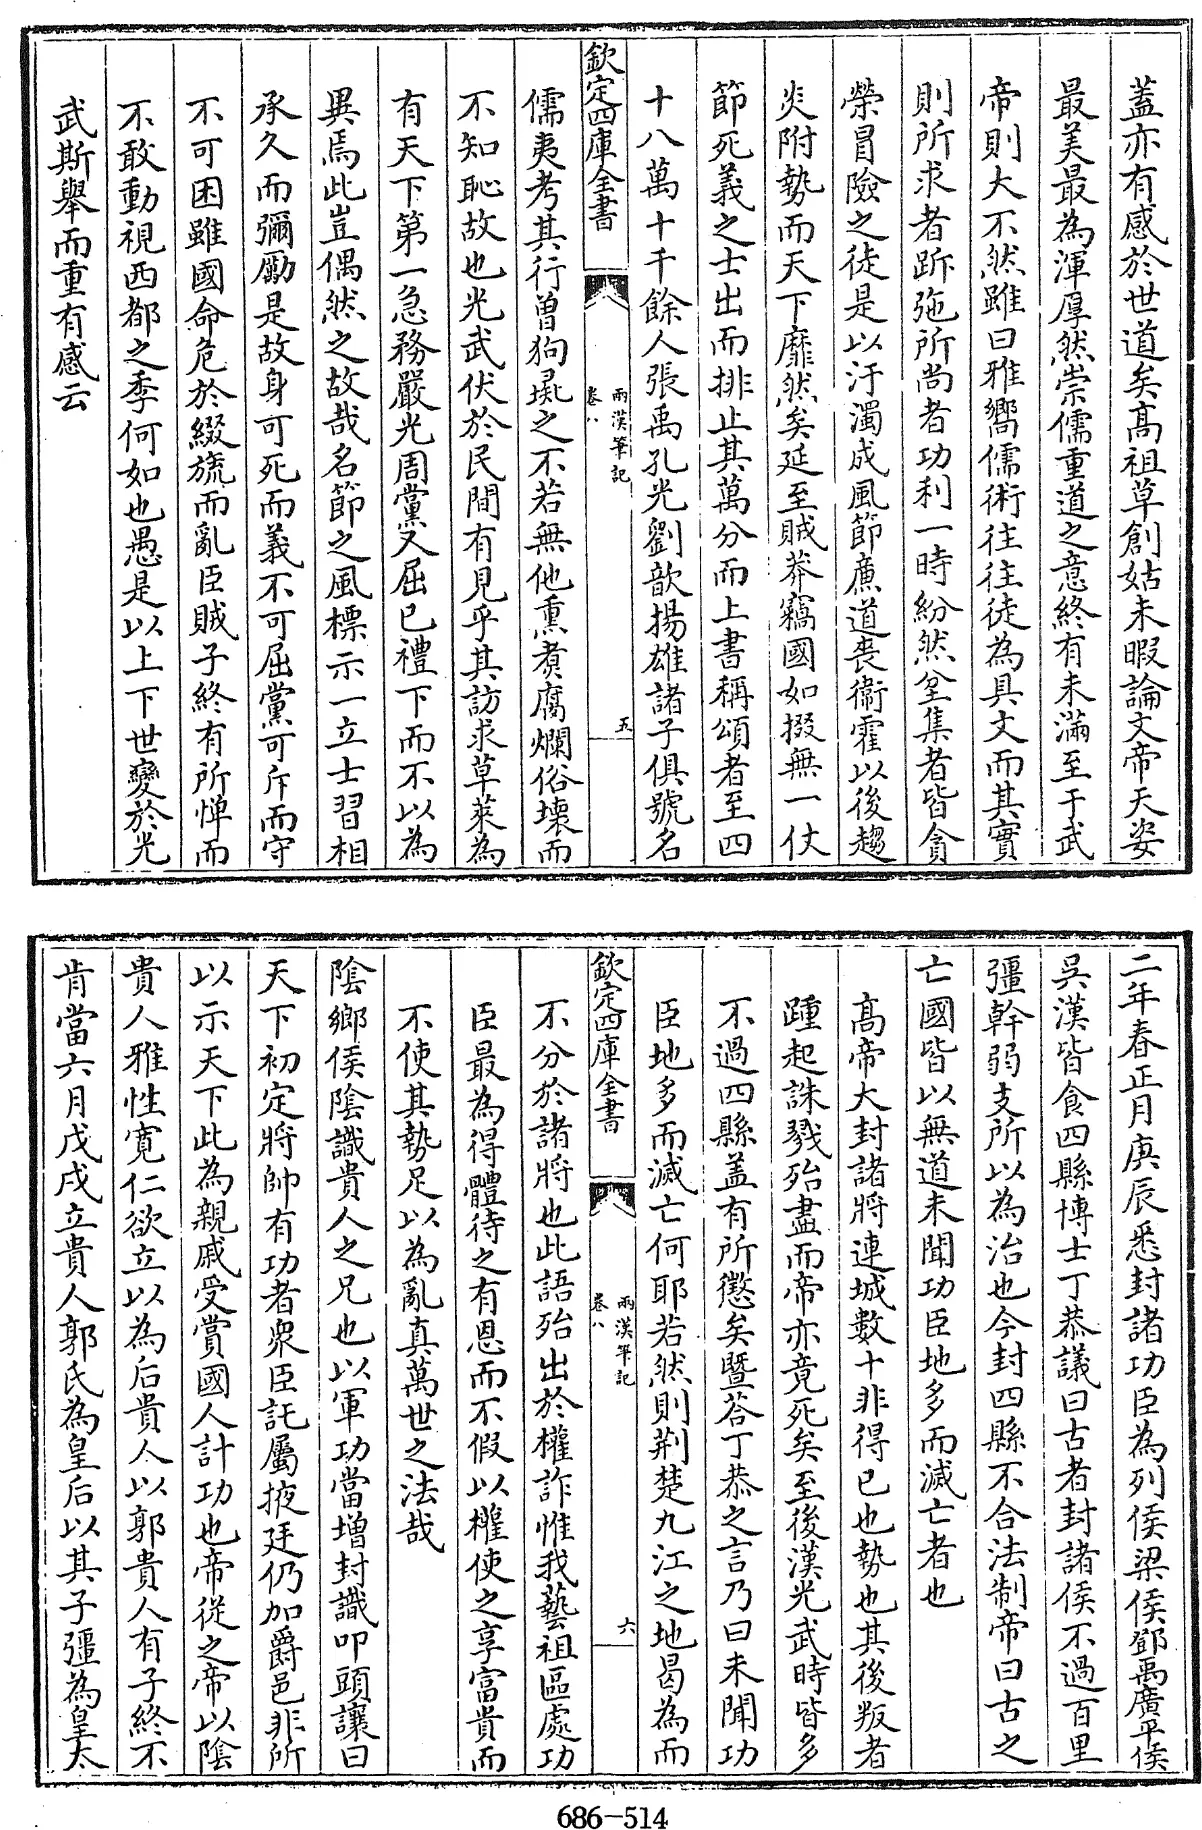 蓋亦有感於世道矣髙祖草創姑未暇論文帝天姿
最美最為渾厚然崇儒重道之意終有未滿至于武
帝則大不然雖曰雅嚮儒術往往徒為具文而其實
則所求者跅弛所尚者功利一時紛然坌集者皆貪
榮冒險之徒是以汙濁成風節亷道喪衞霍以後趨
炎附勢而天下靡然矣延至賊莽竊國如掇無一仗
節死義之士出而排止其萬分而上書稱頌者至四
十八萬十千餘人張禹孔光劉歆揚雄諸子俱號名
欽定四庫全書
兩漢筆記
卷八
五
儒夷考其行曾狗彘之不若無他熏煑腐爛俗壞而
不知恥故也光武伏於民間有見乎其訪求草萊為
有天下第一急務嚴光周黨又屈已禮下而不以為
異焉此豈偶然之故哉名節之風標示一立士習相
承久而彌勵是故身可死而義不可屈黨可斥而守
不可困雖國命危於綴旒而亂臣賊子終有所憚而
不敢動視西都之季何如也愚是以上下世變於光
武斯舉而重有感云
二年春正月庚辰悉封諸功臣為列侯梁侯鄧禹廣平侯
吳漢皆食四縣博士丁恭議曰古者封諸侯不過百里
彊幹弱支所以為治也今封四縣不合法制帝曰古之
亡國皆以無道未聞功臣地多而滅亡者也
髙帝大封諸將連城數十非得已也勢也其後叛者
踵起誅戮殆盡而帝亦竟死矣至後漢光武時皆多
不過四縣盖有所懲矣暨荅丁恭之言乃曰未聞功
臣地多而滅亡何耶若然則荆楚九江之地曷為而
欽定四庫全書
兩漢筆記
卷八
六
不分於諸將也此語殆出於權詐惟我藝祖區處功
臣最為得體待之有恩而不假以權使之享富貴而
不使其勢足以為亂真萬世之法哉
陰鄉侯陰識貴人之兄也以軍功當增封識叩頭讓曰
天下初定將帥有功者衆臣託屬掖廷仍加爵邑非所
以示天下此為親戚受賞國人計功也帝從之帝以陰
貴人雅性寛仁欲立以為后貴人以郭貴人有子終不
肯當六月戊戌立貴人郭氏為皇后以其子彊為皇太
686-514